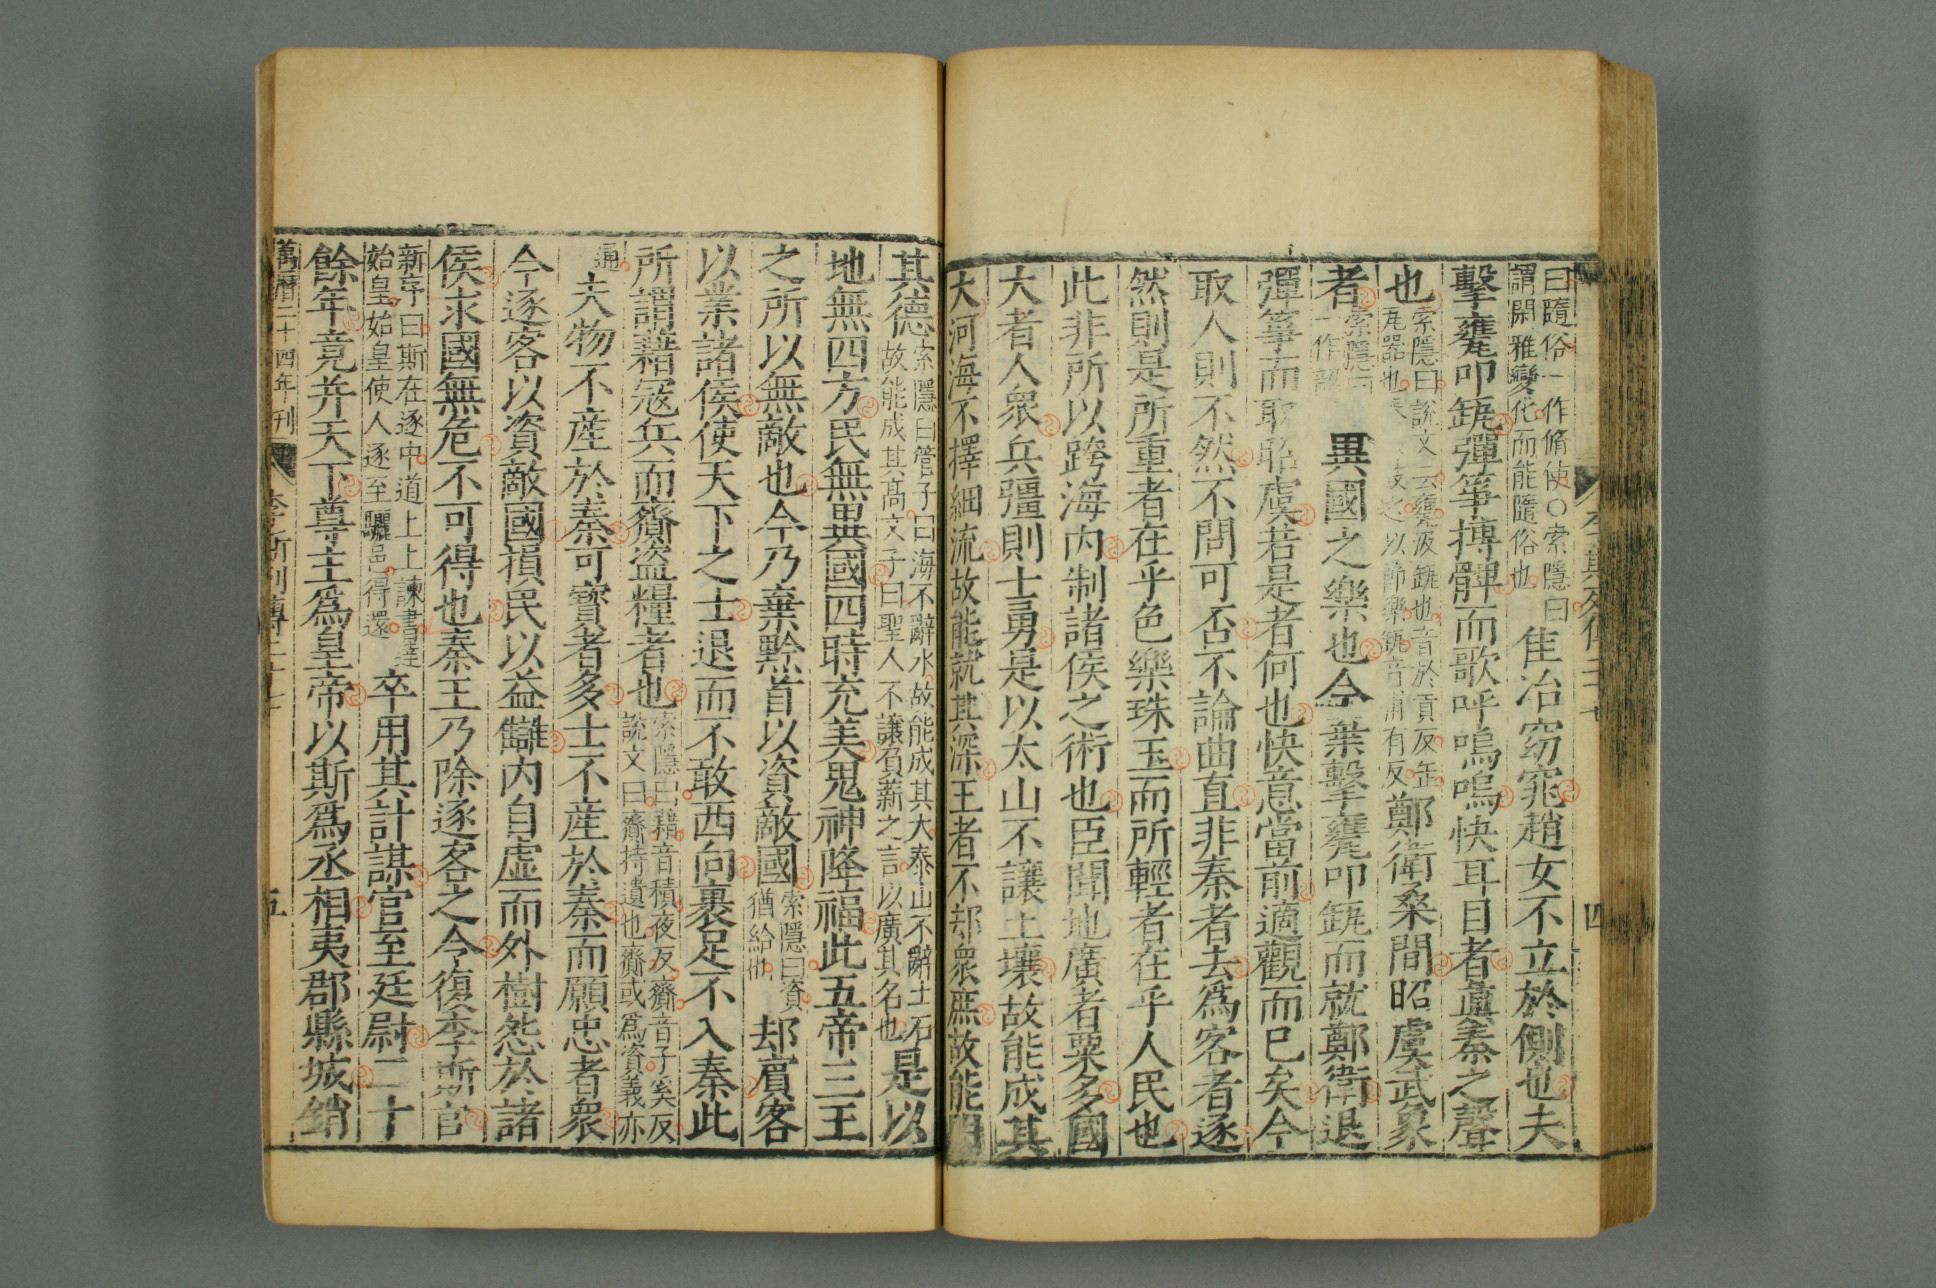 李斯列傳二十七
四
曰隨俗一作脩使○索隱曰
謂閑雅變化而能隨俗也
佳冶窈窕趙女不立於側也夫
擊甕叩缻彈箏搏髀而歌呼嗚嗚快耳目者眞秦之聲
也
索隱曰說文云甕汲缾也音於貢反缶
瓦器也秦人鼓之以節樂缻音甫有反
鄭衛桑間昭虞武象
者
索隱曰
一作韶
異國之樂也今棄擊甕叩缻而就鄭衛退
彈箏而取昭虞若是者何也快意當前適觀而已矣今
取人則不然不問可否不論曲直非秦者去爲客者逐
然則是所重者在乎色樂珠玉而所輕者在乎人民也
此非所以跨海內制諸侯之術也臣聞地廣者粟多國
大者人衆兵彊則士勇是以太山不讓土壤故能成其
大河海不擇細流故能就其深王者不却衆庶故能明
其德
索隱曰管子曰海不辭水故能成其大泰山不辭土石
故能成其高文子曰聖人不讓負薪之言以廣其名也
是以
地無四方民無異國四時充美鬼神降福此五帝三王
之所以無敵也今乃棄黔首以資敵國
索隱曰資
猶給也
却賓客
以業諸侯使天下之士退而不敢西向裹足不入秦此
所謂藉寇兵而齎盜糧者也
索隱曰藉音積夜反齎音子奚反
說文曰齎持遺也齎或爲資義亦
通
夫物不產於秦可寶者多士不產於秦而願忠者衆
今逐客以資敵國損民以益讎內自虛而外樹怨於諸
侯求國無危不可得也秦王乃除逐客之令復李斯官
新序曰斯在逐中道上上諫書達
始皇始皇使人逐至驪邑得還
卒用其計謀官至廷尉二十
餘年竟并天下尊主爲皇帝以斯爲丞相夷郡縣城銷
萬曆二十四年刊
李斯列傳二十七
五